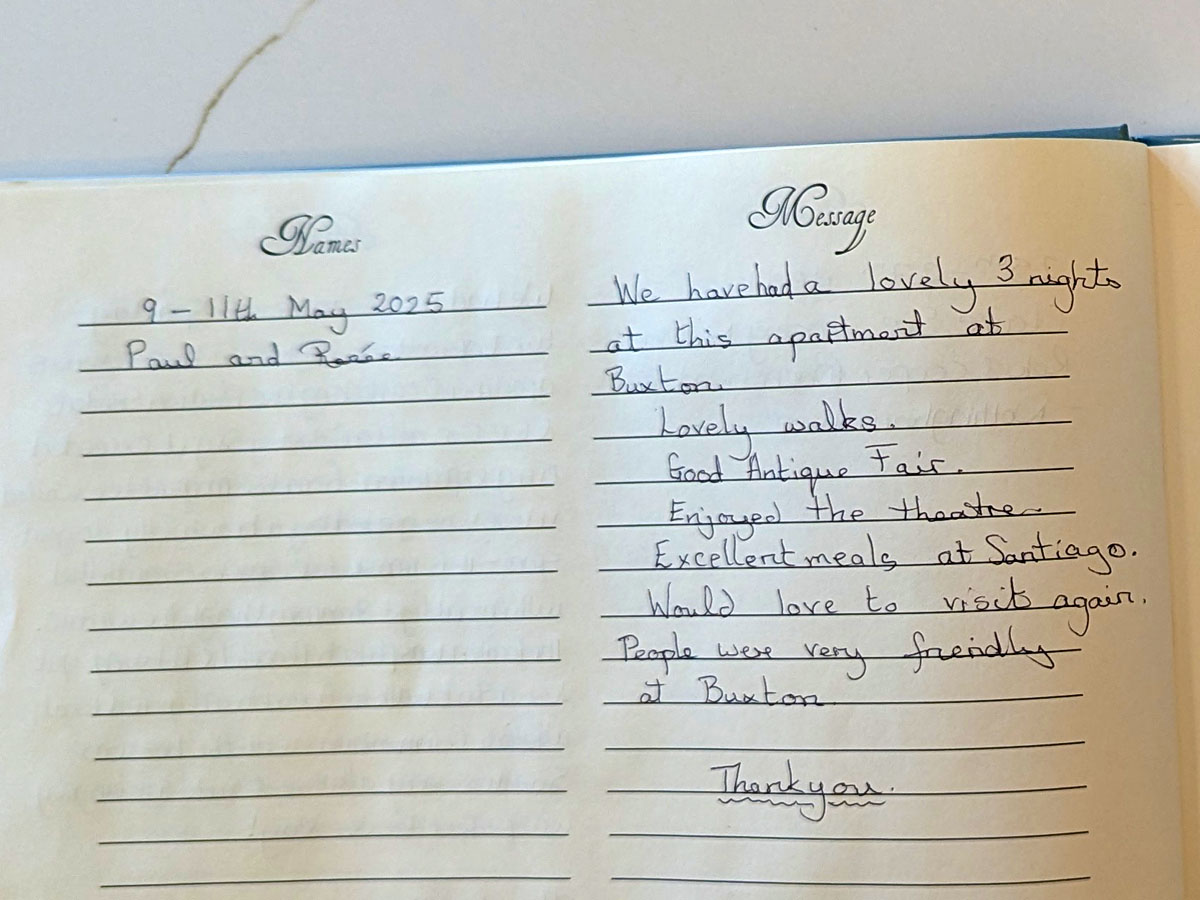 Names
9 - 11th May 2025
Paul and Renée
Message
We have had a lovely 3 nights
at this apartment at
Buxton
Lovely walks.
Good Antique Fair.
Enjoyed the theatre
Excellent meals at Santiago.
Would love to visit again.
People were very freindly
at Buxton
Thankyou.